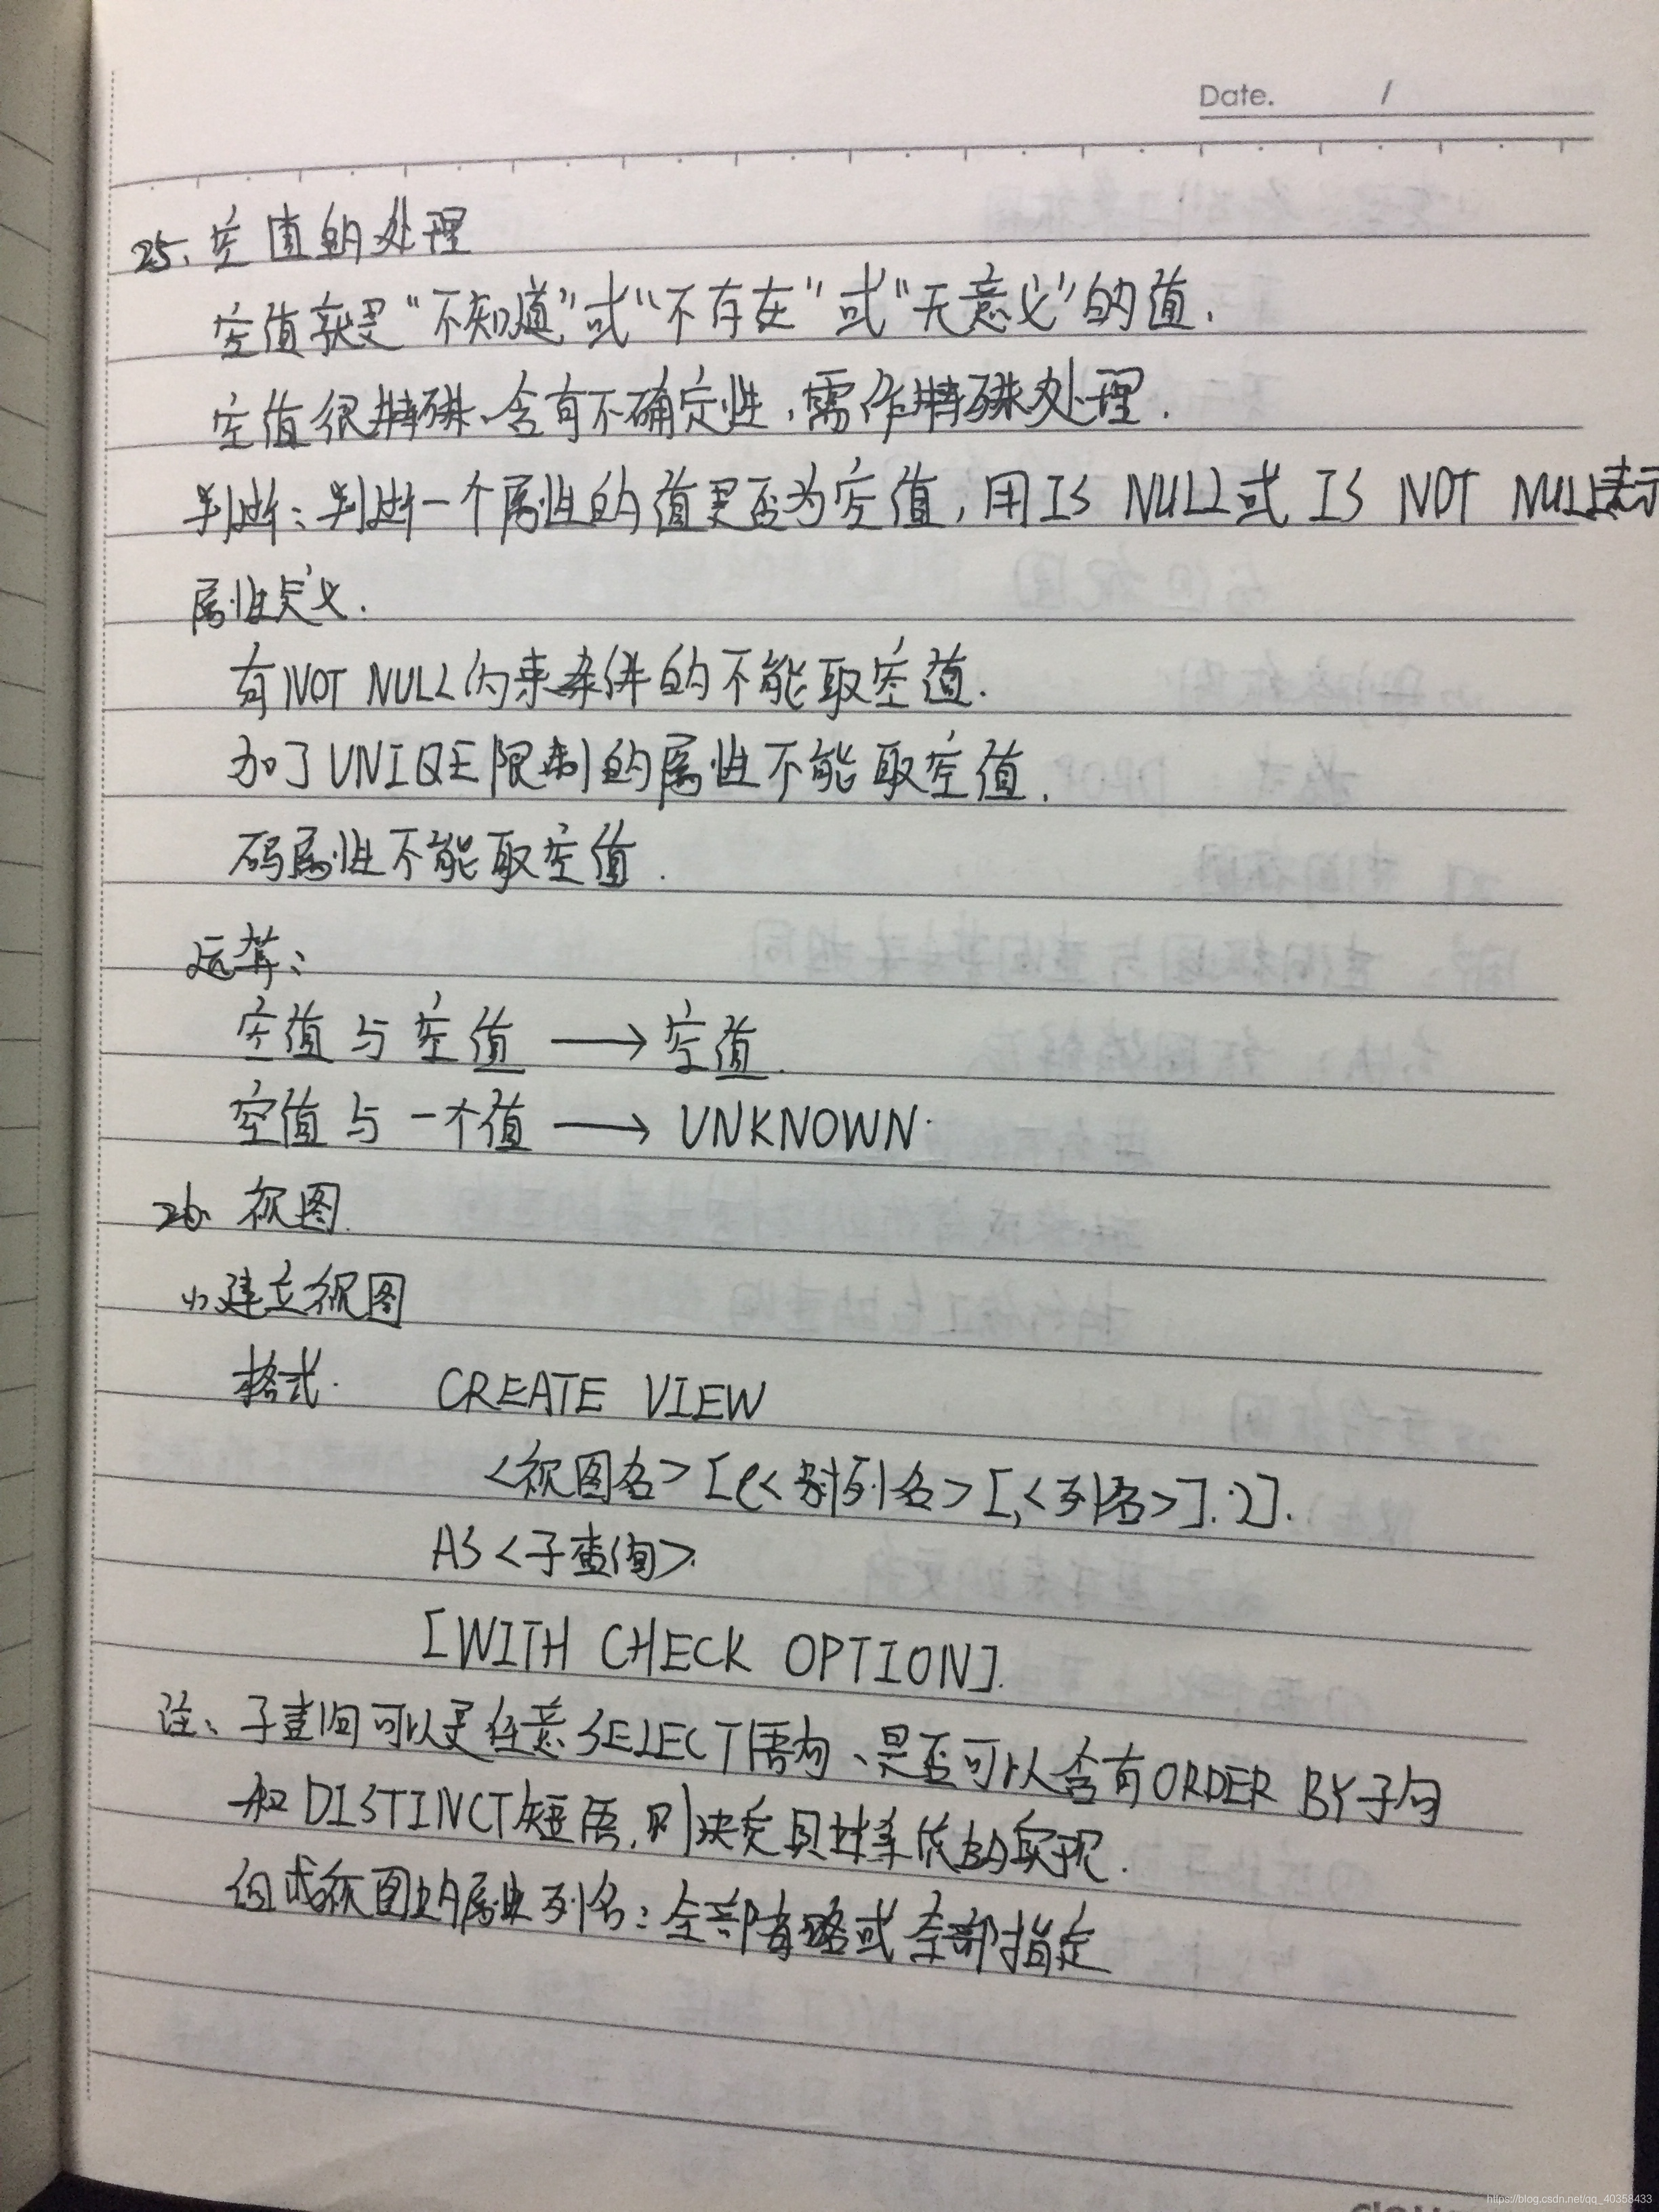 Date. /
25、空值的处理
空值就是“不知道”或“不存在”或“无意义”的值.
空值很特殊、含有不确定性,需作特殊处理.
判断:判断一个属性的值是否为空值,用IS NULL或 IS NOT NULL表示
属性定义.
有NOT NULL约束条件的不能取空值.
加了UNIQE限制的属性不能取空值.
码属性不能取空值.
运算:
空值与空值 → 空值.
空值与一个值 → UNKNOWN.
26. 视图.
(1)建立视图
格式. CREATE VIEW
<视图名>[(<列名>[,<列名>].)].
AS<子查询>.
[WITH CHECK OPTION].
注、子查询可以是任意SELECT语句、是否可以含有ORDER BY子句
和DISTINCT短语,则决定具体系统的实现.
组成视图的属性列名:全部省略或全部指定
https://blog.csdn.net/qq_40358433